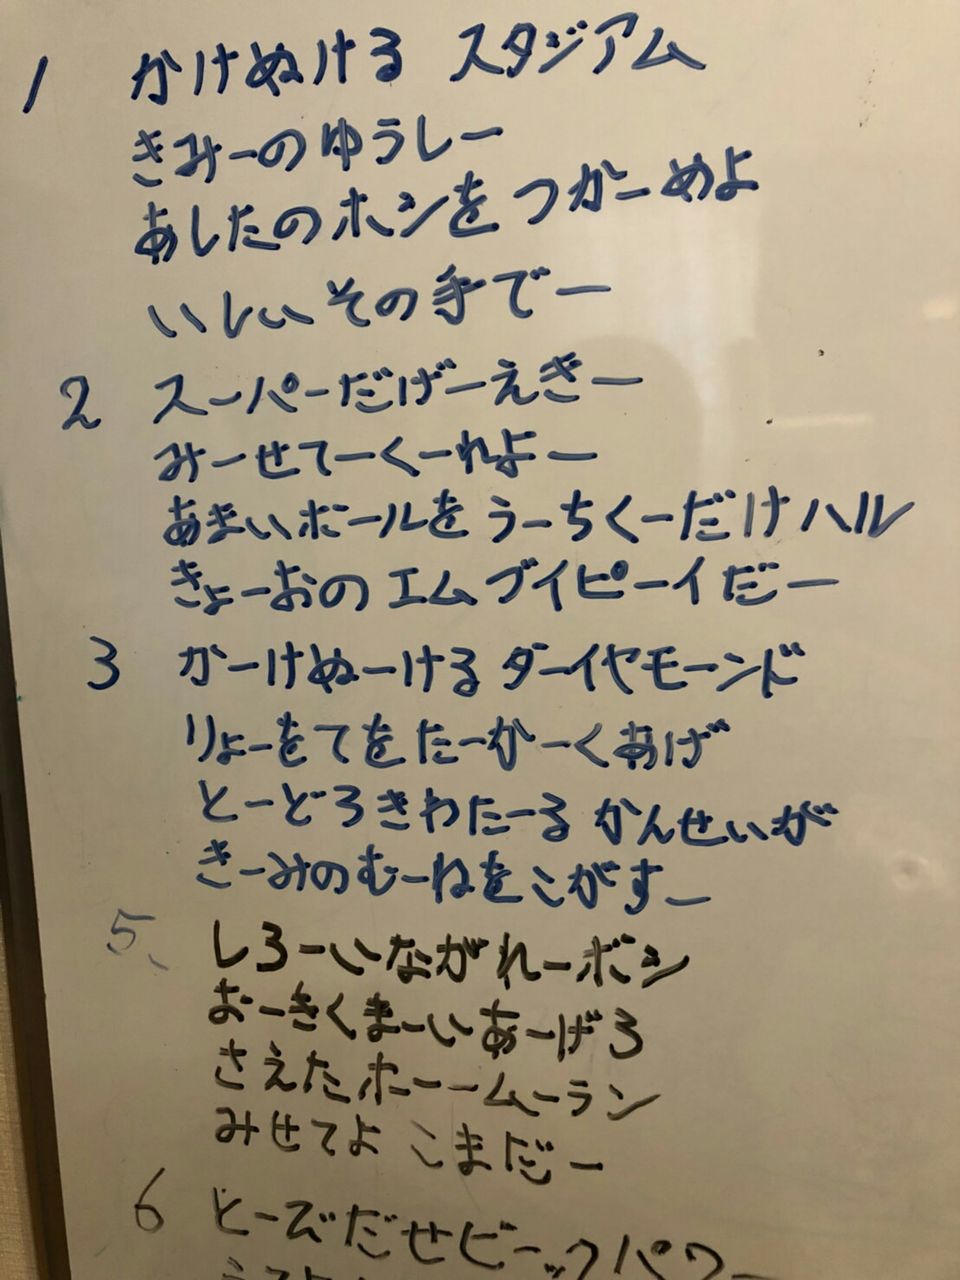 1 かけぬける スタジアム
きみーのゆうしー
あしたのホシを つかーめよ
いしい その手でー
2 スーパーだげーえきー
みーせてーくーれよー
あまいボールを うーちくーだけ ハル
きょーおの エム ブイピーイだー
3 かーけぬーける ダーイヤモーンド
りょーをてを たーかーくあげ
とーどろきわたーる かんせいが
きーみのむーねを こがすー
5、 しろーいながれーボシ
おーきくまーい あーげろ
さえた ホーームーラン
みせてよ こまだー
6 とーびだせビーックパワー